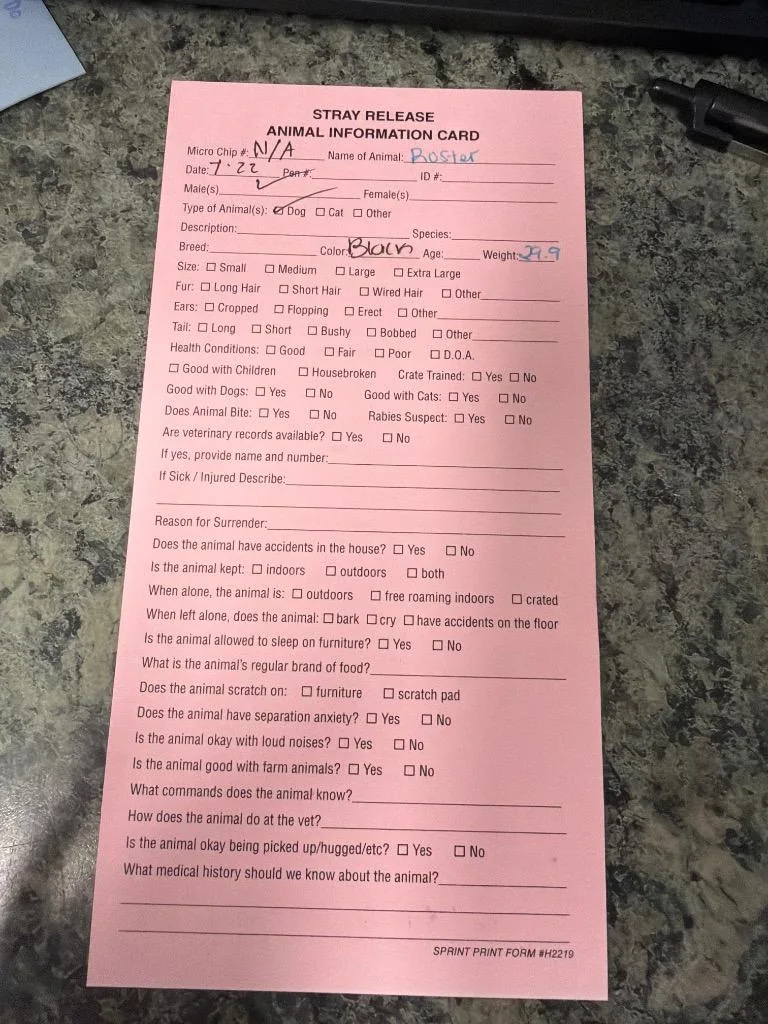 STRAY RELEASE
ANIMAL INFORMATION CARD
Micro Chip #: N/A Name of Animal: Roster
Date: 7·22 Pen #: ID #:
Male(s) ✓ Female(s)
Type of Animal(s): ☑ Dog ☐ Cat ☐ Other
Description: Species:
Breed: Color: Black Age: Weight: 29.9
Size: ☐ Small ☐ Medium ☐ Large ☐ Extra Large
Fur: ☐ Long Hair ☐ Short Hair ☐ Wired Hair ☐ Other
Ears: ☐ Cropped ☐ Flopping ☐ Erect ☐ Other
Tail: ☐ Long ☐ Short ☐ Bushy ☐ Bobbed ☐ Other
Health Conditions: ☐ Good ☐ Fair ☐ Poor ☐ D.O.A.
☐ Good with Children ☐ Housebroken Crate Trained: ☐ Yes ☐ No
Good with Dogs: ☐ Yes ☐ No Good with Cats: ☐ Yes ☐ No
Does Animal Bite: ☐ Yes ☐ No Rabies Suspect: ☐ Yes ☐ No
Are veterinary records available? ☐ Yes ☐ No
If yes, provide name and number:
If Sick / Injured Describe:
Reason for Surrender:
Does the animal have accidents in the house? ☐ Yes ☐ No
Is the animal kept: ☐ indoors ☐ outdoors ☐ both
When alone, the animal is: ☐ outdoors ☐ free roaming indoors ☐ crated
When left alone, does the animal: ☐ bark ☐ cry ☐ have accidents on the floor
Is the animal allowed to sleep on furniture? ☐ Yes ☐ No
What is the animal's regular brand of food?
Does the animal scratch on: ☐ furniture ☐ scratch pad
Does the animal have separation anxiety? ☐ Yes ☐ No
Is the animal okay with loud noises? ☐ Yes ☐ No
Is the animal good with farm animals? ☐ Yes ☐ No
What commands does the animal know?
How does the animal do at the vet?
Is the animal okay being picked up/hugged/etc? ☐ Yes ☐ No
What medical history should we know about the animal?
SPRINT PRINT FORM #H2219